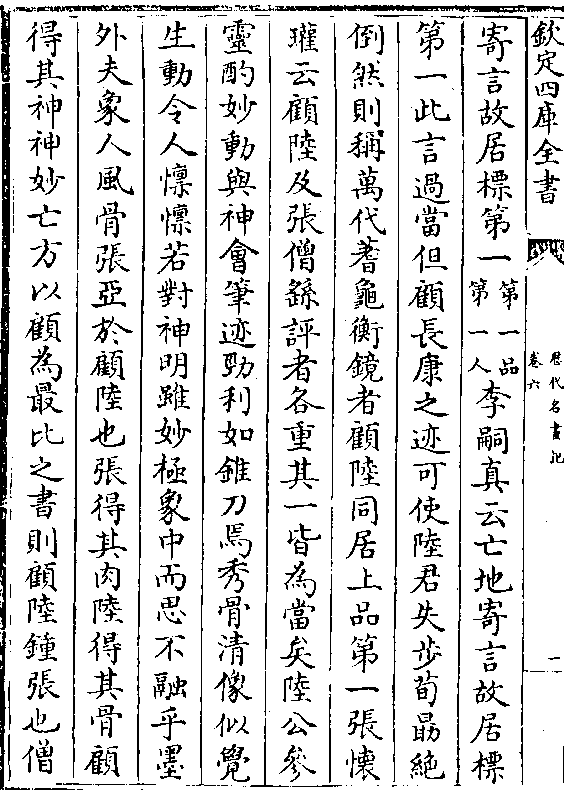 欽定四庫全書
歷代名畫記
卷六
一
寄言故居標第一第一品第一人李嗣真云亡地寄言故居標
第一此言過當但顧長康之迹可使陸君失步荀勗絶
倒然則稱萬代蓍龜衡鏡者顧陸同居上品第一張懐
瓘云顧陸及張僧繇評者各重其一皆為當矣陸公參
靈酌妙動與神會筆迹勁利如錐刀焉秀骨清像似覺
生動令人懔懔若對神明雖妙極象中而思不融乎墨
外夫象人風骨張亞於顧陸也張得其肉陸得其骨顧
得其神神妙亡方以顧為最比之書則顧陸鍾張也僧